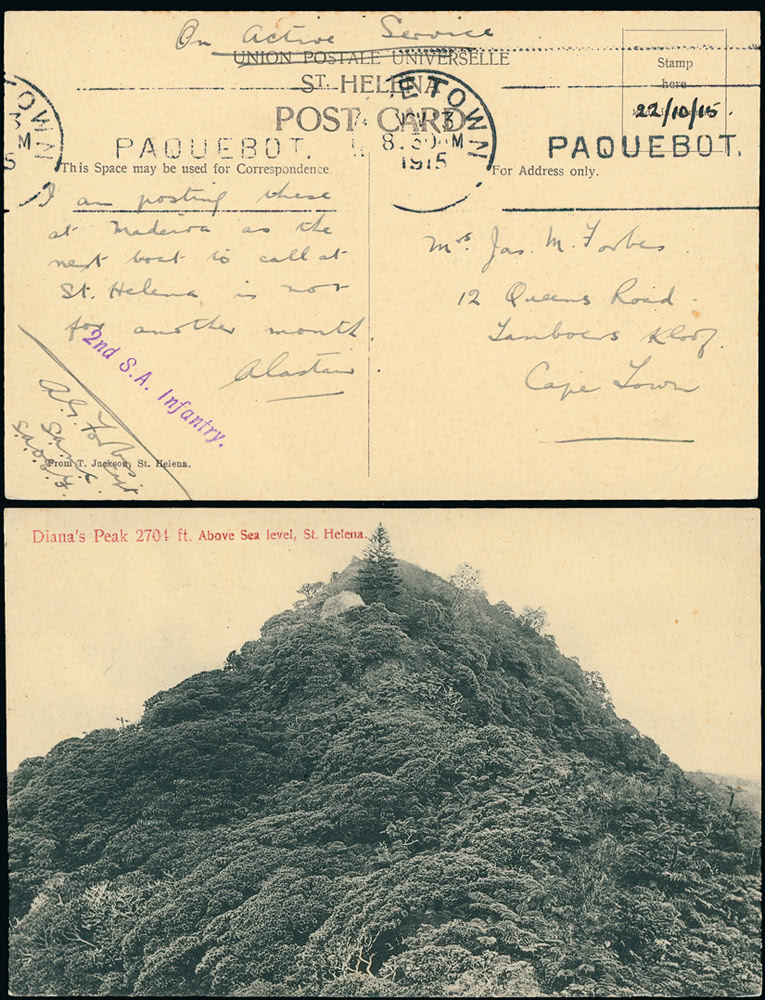 On Active Service
UNION POSTALE UNIVERSELLE
ST. HELENA
POST CARD
Stamp
here
22/10/15.
ETOWN
NOV 3
8.30 M
1915
TOWN
3
M
5
PAQUEBOT.
PAQUEBOT.
This Space may be used for Correspondence.
For Address only.
I am posting these
at Madeira as the
next boat to call at
St. Helena is not
for another month.
Alastair
2nd S.A. Infantry.
A. G. Forbes
Capt
S.A.M.C.
S.A.O.E.F.
From T. Jackson, St. Helena.
Mrs Jas. M. Forbes
12 Queens Road.
Tamboers Kloof.
Cape Town
Diana's Peak 2704 ft. Above Sea level, St. Helena.